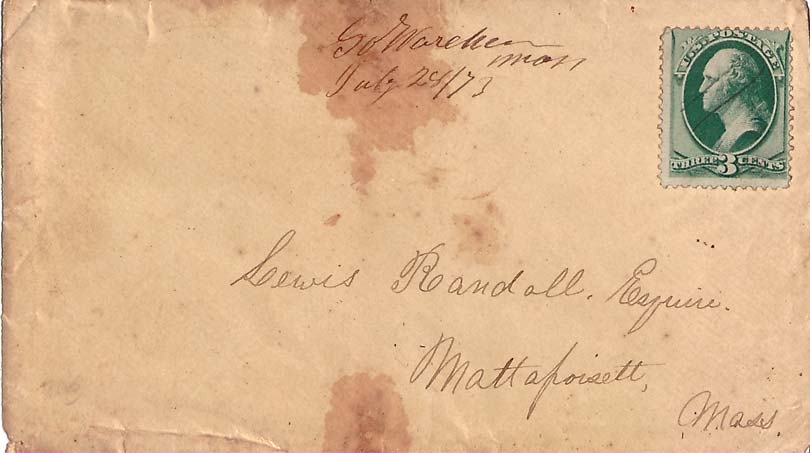 So Wareham
Mass
July 29/73
U.S. POSTAGE
THREE 3 CENTS
Lewis Randall. Esquire.
Mattapoisett,
Mass.